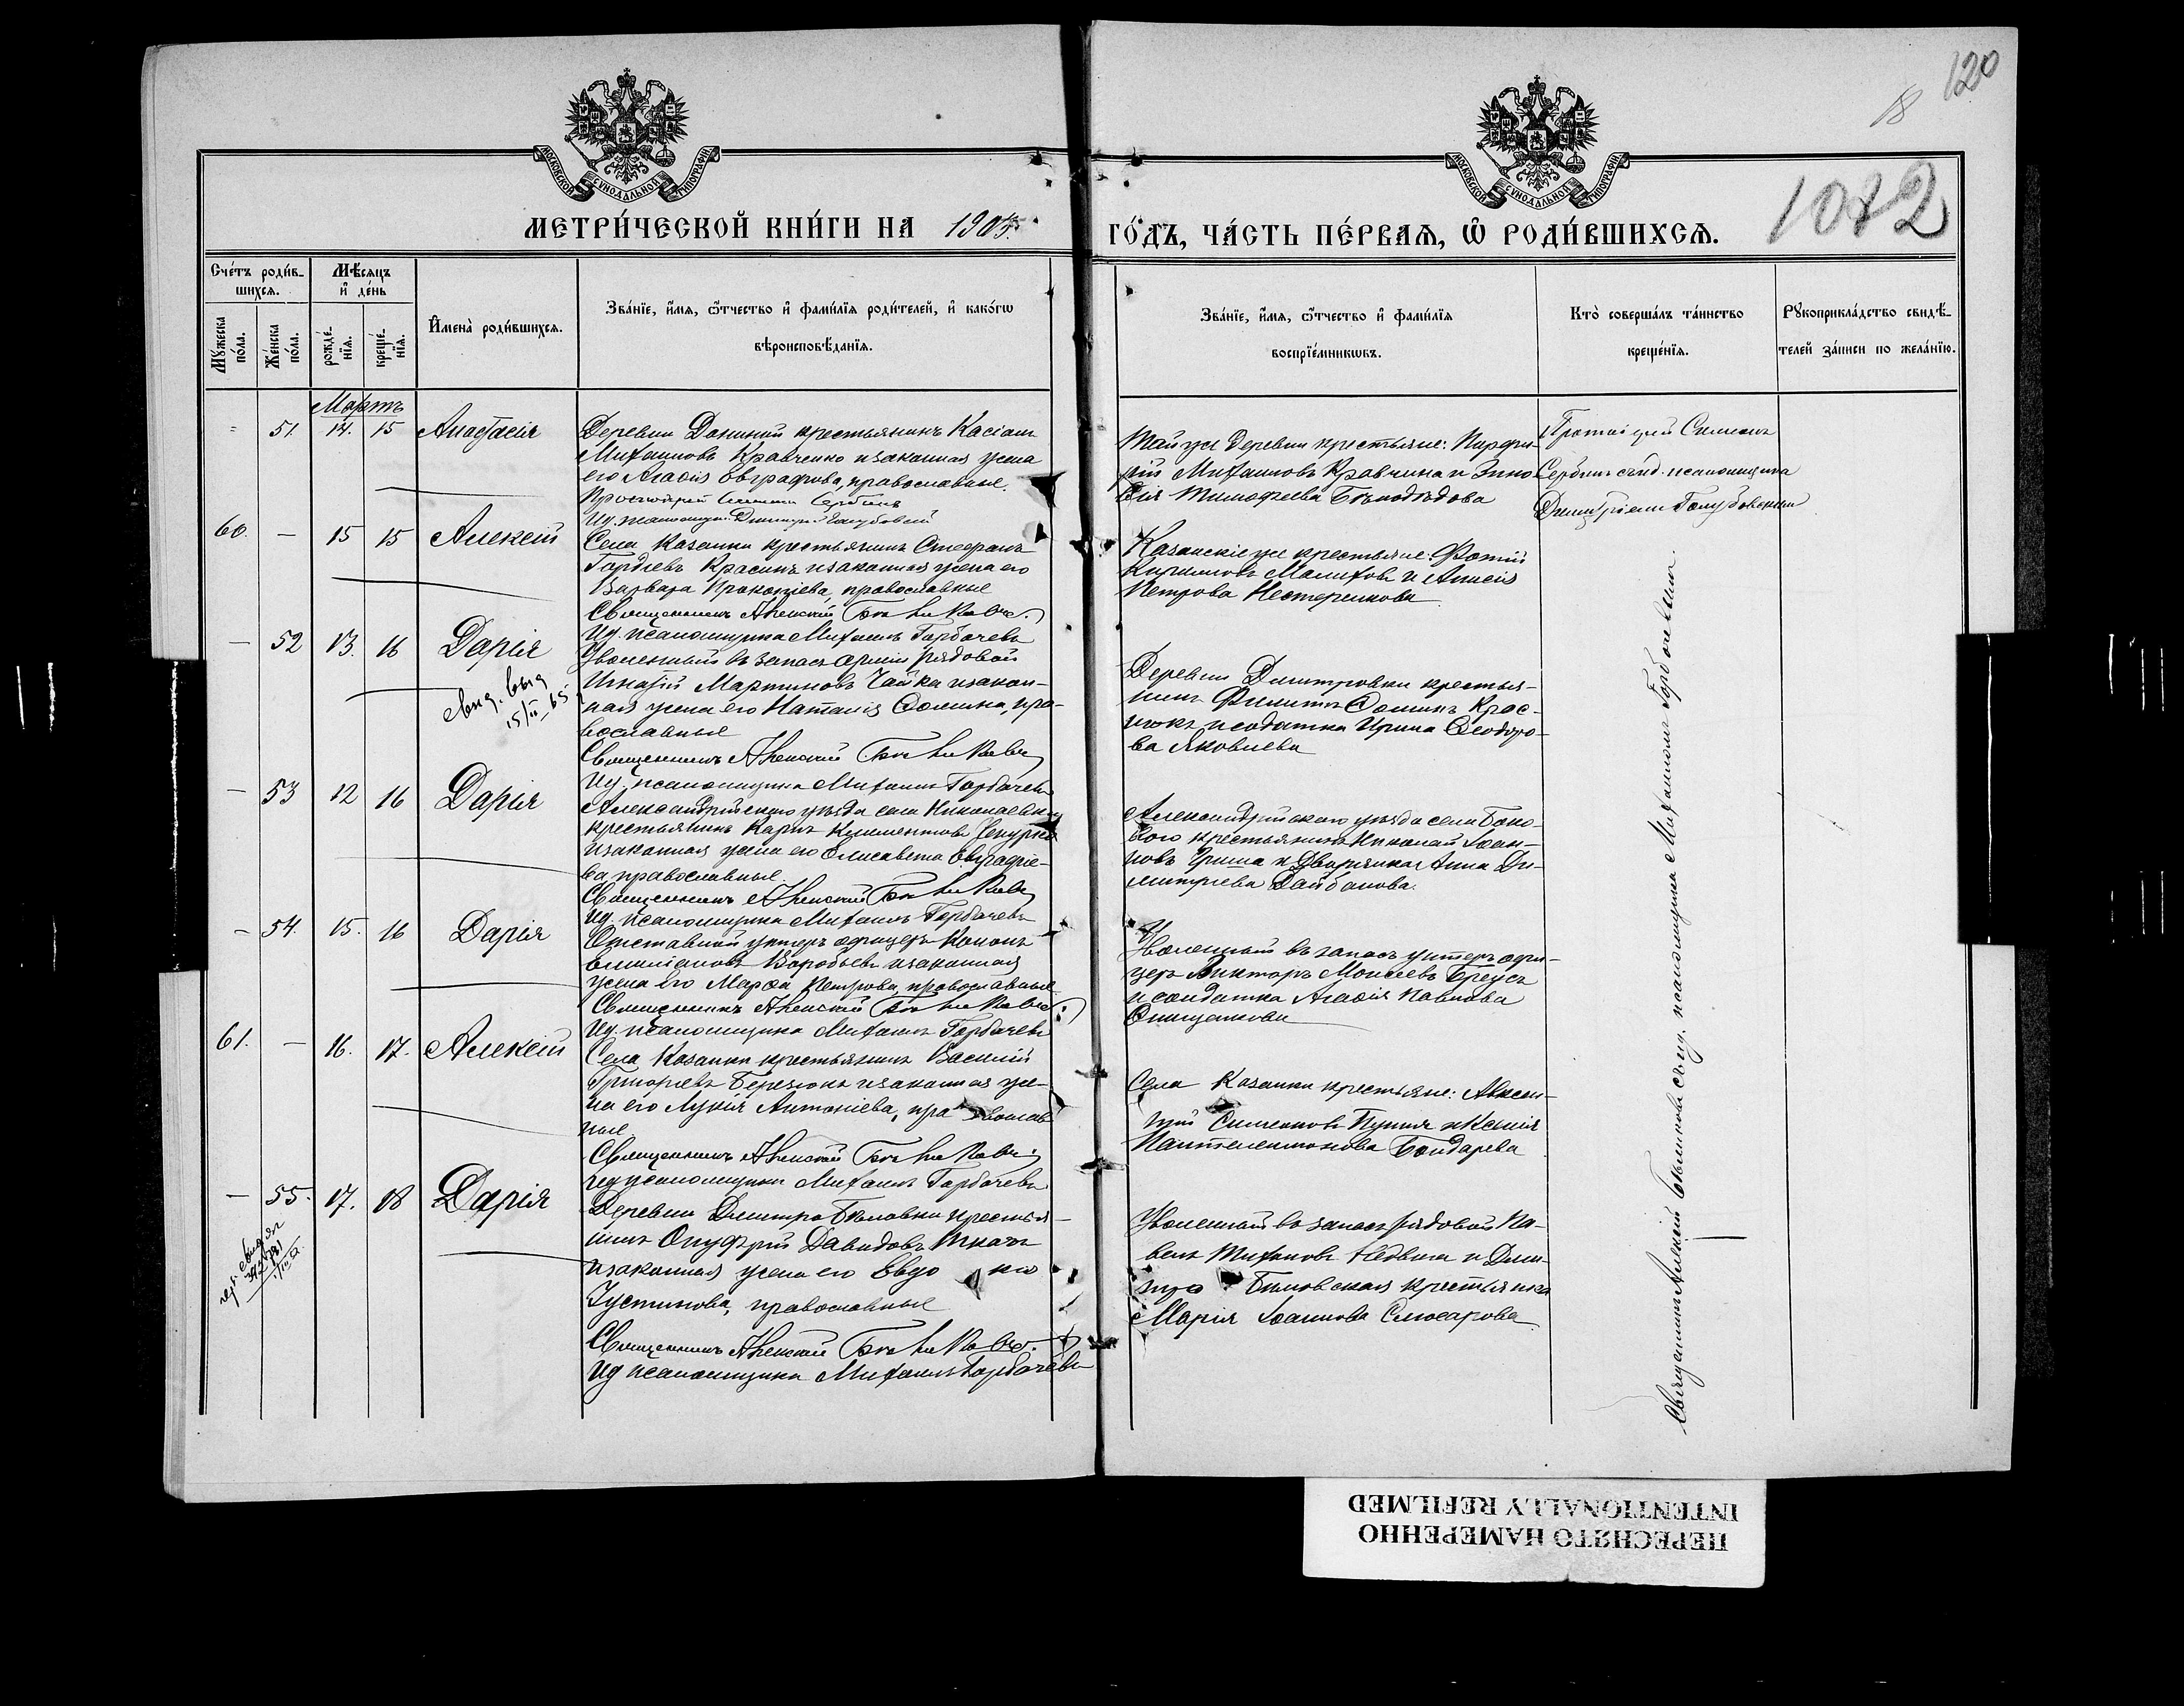 120
18
1082
МОСКОВСКОЙ СУНОДАЛЬНОЙ ТИПОГРАФІИ
МОСКОВСКОЙ СУНОДАЛЬНОЙ ТИПОГРАФІИ
МЕТРИ́ЧЕСКОЙ КНИ́ГИ НА 1905
ГО́ДЪ, ЧА́СТЬ ПЕ́РВАѦ, Ѡ РОДИ́ВШИХСѦ.
Сче́тъ роди́в-
шихсѧ.
Мѣ́сѧцъ
и҆ де́нь
Мꙋ́жеска
по́ла.
Же́нска
по́ла.
рожде́-
нїѧ.
креще́-
нїѧ.
И҆мена̀ роди́вшихсѧ.
Зва́нїе, и҆́мѧ, ѻ҆́тчество и҆ фами́лїѧ роди́телей, и҆ како́гѡ
вѣроисповѣ́данїѧ.
Зва́нїе, и҆́мѧ, ѻ҆́тчество и҆ фами́лїѧ
воспрїе́мникѡвъ.
Кто̀ соверша́лъ та́инство
креще́нїѧ.
Рꙋкоприкла́дство свидѣ́-
телей за́писи по жела́нїю.
Мартъ
51. 14. 15 Анастасія
Деревни Доминой крестьянинъ Касіанъ
Михаиловъ Кравченко и законная жена
его Агаѳія Евграфова, православные.
Протоіерей Симеонъ Сербинъ
Ид. псаломщ. Димитрій Голубовскій
Той же деревни крестьяне: Порфи-
рій Михаиловъ Кравченко и
Тимофеева Бѣлодѣдова
Протоіерей Симеонъ
Сербинъ съ и.д. псаломщика
Димитріемъ Голубовскимъ
60. — 15 15 Алексій
Села Казанки крестьянинъ Стефанъ
Гордіевъ Красинъ и законная жена его
Варвара Прокопіева, православные
Священникъ Алексій
Ид. псаломщика Михаилъ Горбачевъ
Казанскіе же крестьяне: Фотій
Кирилловъ Малиховъ и Анисія
Петрова Нестеренкова
— 52 13. 16 Дарія
свид. выд
15/II 65
Уволенный въ запасъ арміи рядовой
Игнатій Мартиновъ Чайка и закон-
ная жена его Наталія Ѳомина, пра-
вославные
Священникъ Алексій
Ид. псаломщика Михаилъ Горбачевъ
Деревни Димитровки крестья-
нинъ Филиппъ Ѳоминъ Крас-
нюкъ и солдатка Ирина Ѳеодоро-
ва Яковлева
— 53 12 16 Дарія
Александрійскаго уѣзда села Николаевки
крестьянинъ Карпъ Климентовъ Чепурко
и законная жена его Елисавета Евграфіе-
ва православные.
Священникъ Алексій
Ид. псаломщика Михаилъ Горбачевъ
Александрійскаго уѣзда села Боко-
вого крестьянинъ Николай Іоан-
новъ Гриша и дворянка Анна Ди-
митріева Дайбанова.
— 54. 15. 16 Дарія
Отставной унтеръ офицеръ Кононъ
Емиліановъ Воробьевъ и законная
жена его Марѳа Петрова, православные
Священникъ Алексій
Ид. псаломщика Михаилъ Горбачевъ
Уволенный въ запасъ унтеръ офи-
церъ Викторъ Моисеевъ Бреусъ
и солдатка Агаѳія Павлова
Онищенкова
61. — 16. 17. Алексій
Села Казанки крестьянинъ Василій
Григоріевъ Березюкъ и законная же-
на его Лукія Антоніева, православ
ные
Священникъ Алексій
Ид псаломщика Михаилъ Горбачевъ
Села Казанки крестьяне: Авксен-
тій Симеоновъ Пуппа и Ксенія
Пантелеимонова Бондарева
— 55. 17. 18 Дарія
Деревни Димитро Бѣловки крестья-
нинъ Онуфрій Давидовъ Ткачъ
и законная жена его Евдокія
Іустинова, православные
Священникъ Алексій
Ид псаломщика Михаилъ Горбачевъ
Уволенный въ запасъ рядовой Па-
велъ Тихоновъ Недвига и Дми-
тро Бѣловская крестьянка
Марія Іоаннова Слюсарова
Священникъ Алексій съ и.д. псаломщика Михаиломъ Горбачевымъ
ПЕРЕСНЯТО НАМЕРЕННО
INTENTIONALLY REFILMED